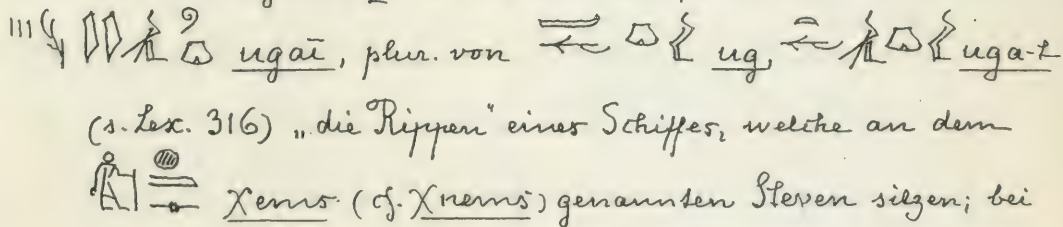 ugaï, plur. von ug, uga-t
(s. Lex. 316) „die Rippen“ eines Schiffes, welche an dem
χems (cf. χnems) genannten Steven sitzen; bei